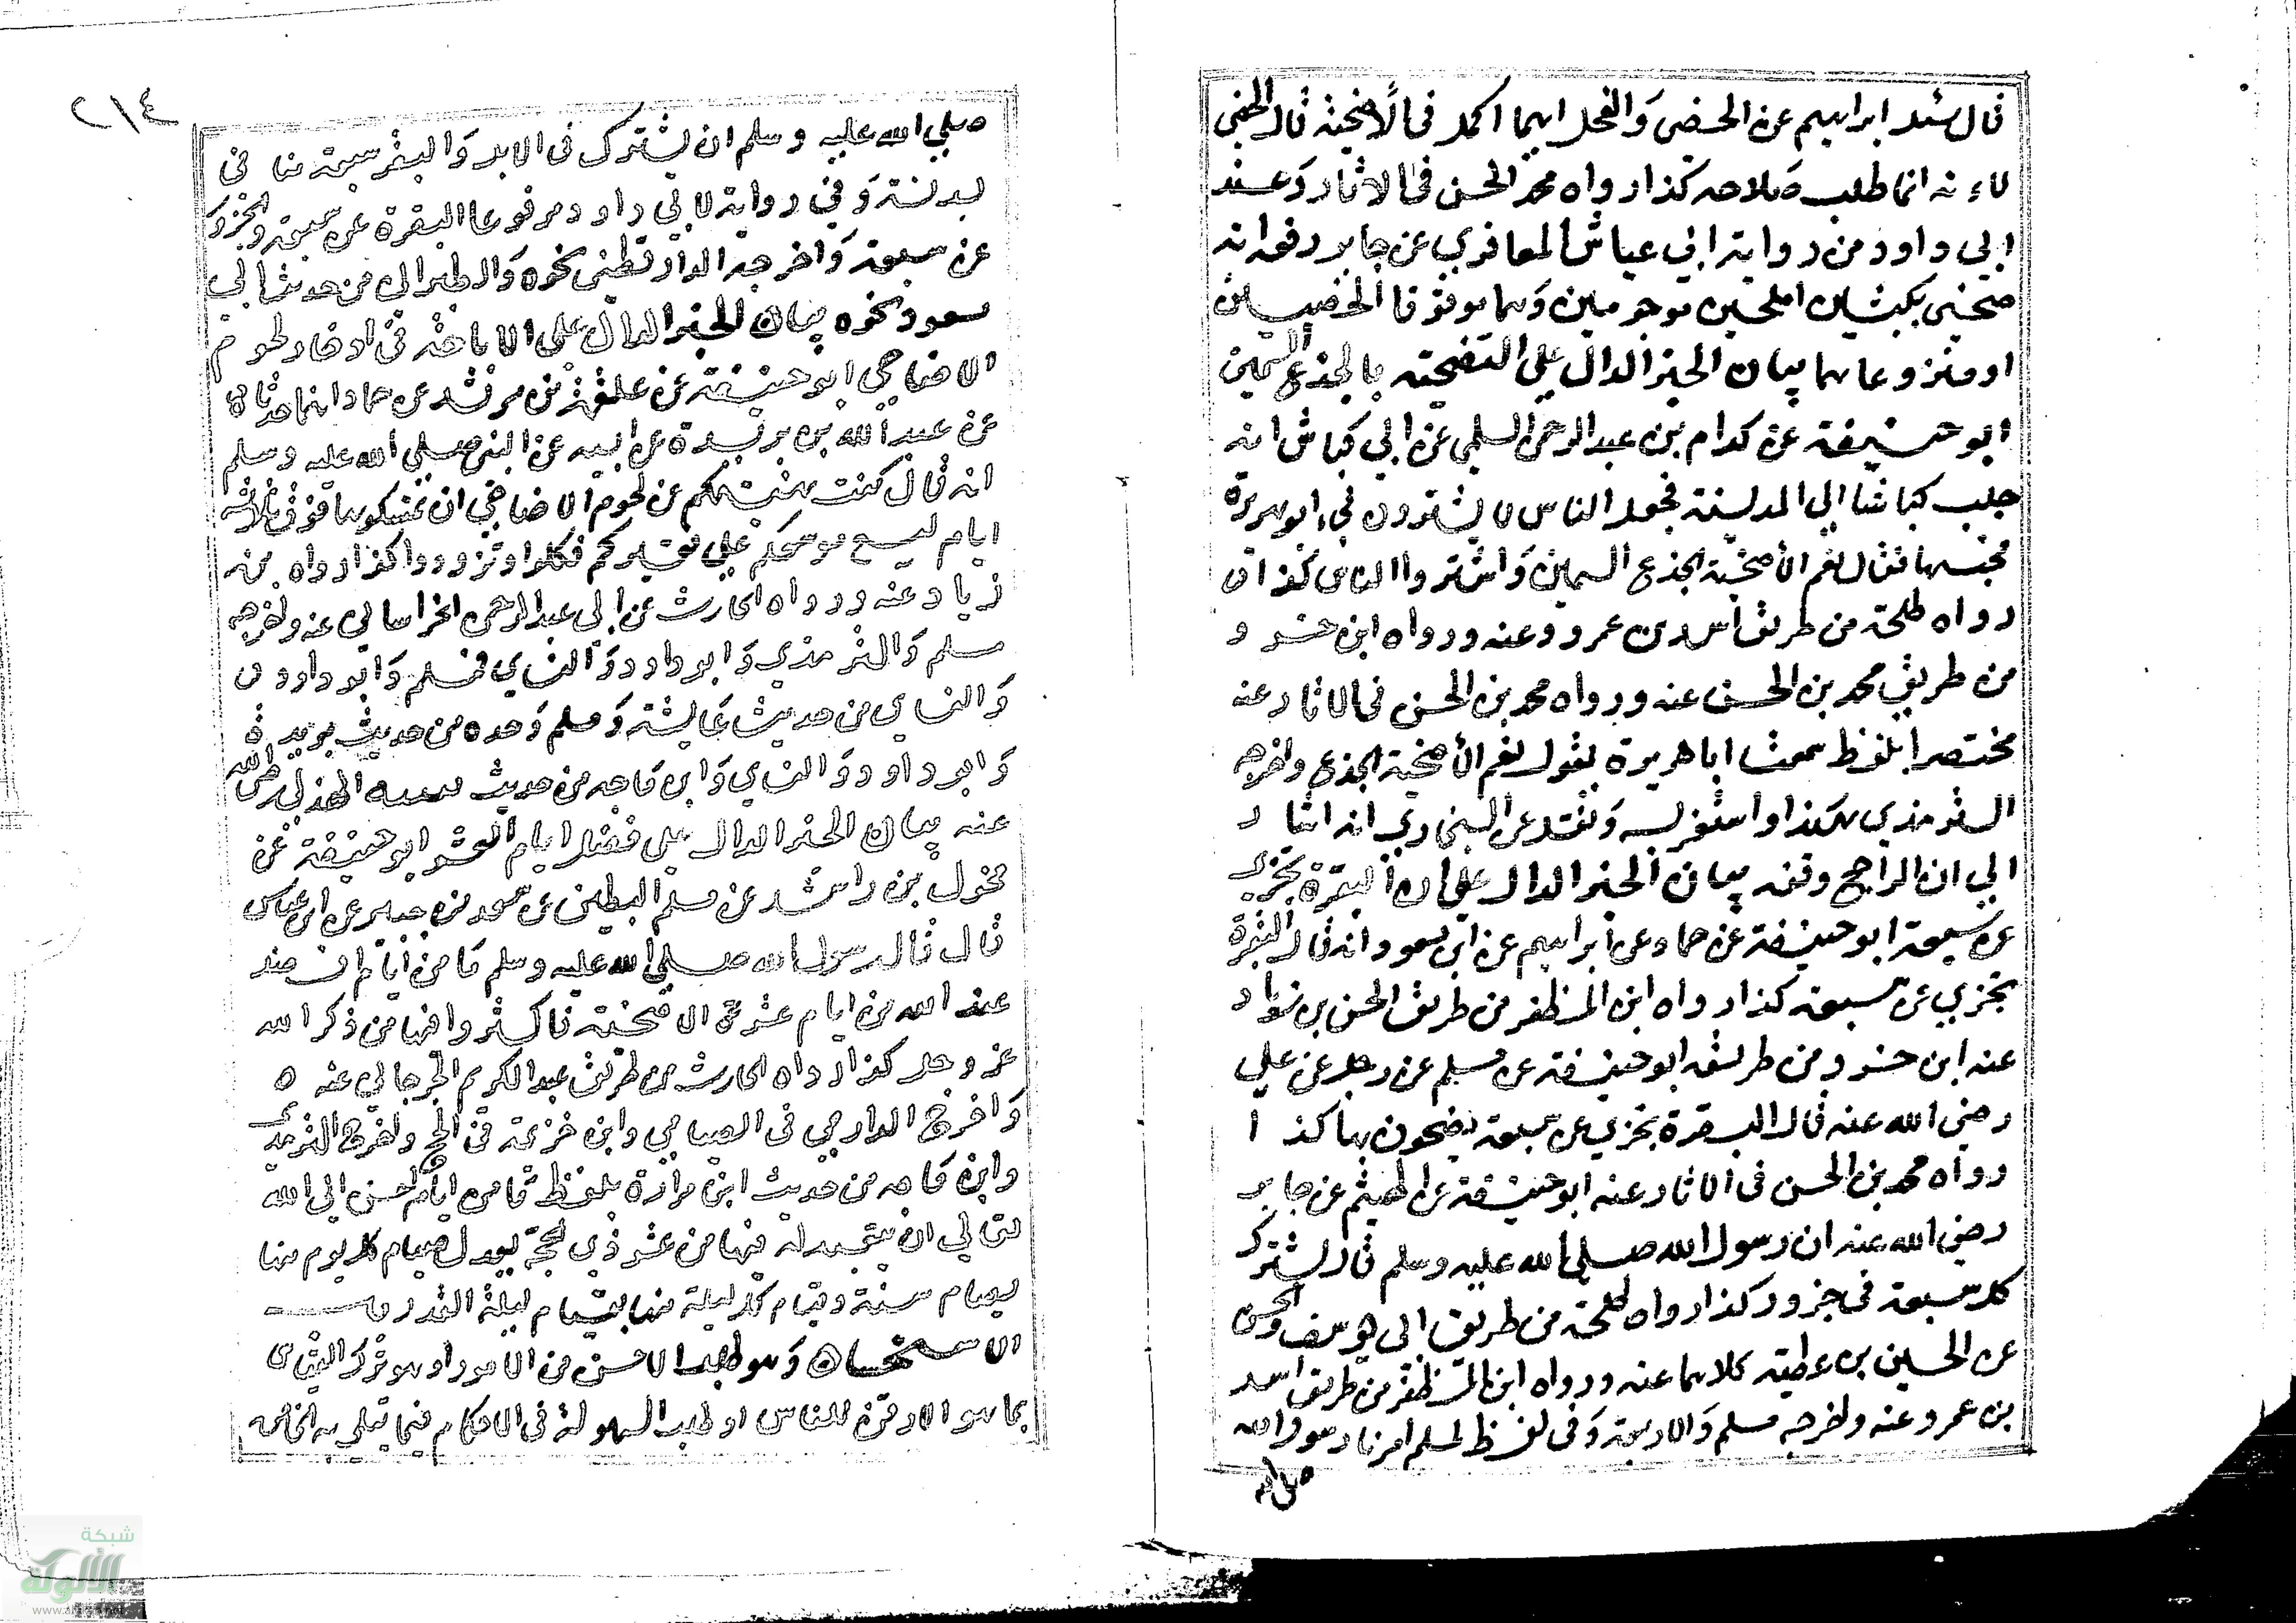 قال سئل ابراهيم عن الخصي والفحل ايهما اكمل في الأضحية قال الخصي
لاءنه انما طلب صلاحه كذا رواه محمد الحسن في الاثار وعند
ابي داود من رواية ابي عياش المعافري عن جابر رفعه انه
ضحى بكبشين املحين موجومين وهما بوفوقا الخصيين
او منزوعاهما بيان الخبر الدال على التضحية بالجذع السمين
ابو حنيفة عن كدام بن عبد الرحمن السلمي عن ابي كباش انه
جلب كباشا الي المدينة فجعل الناس لا يشترون فجاء ابو هريرة
فجسها فقال نعم الأضحية الجذع السمين واشتروا الناس كذا
رواه طلحة من طريق اسد بن عمرو عنه ورواه ابن خسرو
من طريق محمد بن الحسن عنه ورواه محمد بن الحسن في الاثار عنه
مختصرا بلفظ سمعت ابا هريرة يقول نعم الأضحية الجذع واخرجه
الترمذي هكذا واستغربه ونقل عن البخاري انه اشار
الي ان الراجح وقفه بيان الخبر الدال على ان البقرة تجزي
عن سبعة ابو حنيفة عن حماد عن ابراهيم عن ابن مسعود انه قال البقرة
تجزي عن سبعة كذا رواه ابن المظفر من طريق الحسن بن زياد
عنه ابن خسرو ومن طريق ابو حنيفة عن مسلم عن رجل عن علي
رضي الله عنه قال البقرة تجزي عن سبعة يضحون بها كذا
رواه محمد بن الحسن في الاثار عنه ابو حنيفة عن الهيثم عن جابر
رضي الله عنه ان رسول الله صلى الله عليه وسلم قال يشترك
كل سبعة في جزور كذا رواه طلحة من طريق ابي يوسف والحسن
عن الحسين بن عطية كلاهما عنه ورواه ابن المظفر من طريق اسد
بن عمرو عنه واخرجه مسلم والاربعة وفي لفظ لمسلم امرنا رسول الله
صلى الله
٢١٤
صلى الله عليه وسلم ان نشترك في الابل والبقر سبعة منا في
بدنة وفي رواية لابي داود مرفوعا البقرة عن سبعة والجزور
عن سبعة واخرجه الدارقطني نحوه والطبراني من حديث ابي
مسعود نحوه بيان الخبر الدال على الاباحة في ادخار لحوم
الاضاحي ابو حنيفة عن علقمة بن مرثد عن حماد انهما حدثاه
عن عبد الله بن بريدة عن ابيه عن النبي صلى الله عليه وسلم
انه قال كنت نهيتكم عن لحوم الاضاحي ان تمسكوها فوق ثلاثة
ايام ليسع موسعكم على فقيركم فكلوا وتزودوا كذا رواه بن
زياد عنه ورواه الحارث عن ابي عبد الرحمن الخراساني عنه واخرجه
مسلم والترمذي وابو داود والنساي فمسلم وابو داود
والنساي من حديث عايشة ومسلم وحده من حديث بريدة
وابو داود والنساي وابن ماجه من حديث نبيشة الهذلي رضي الله
عنه بيان الخبر الدال على فضل ايام العشر ابو حنيفة عن
مخول بن راشد عن مسلم البطين عن سعيد بن جبير عن ابن عباس
قال قال رسول الله صلى الله عليه وسلم ما من ايام افضل
عند الله من ايام عشر الاضحية فاكثروا فيها من ذكر الله
عز وجل كذا رواه الحارث من طريق عبد الكريم الجرجاني عنه
واخرج الدارمي في الصيام وابن خزيمة في الحج واخرج الترمذي
وابن ماجه من حديث ابي هريرة بلفظ ما من ايام احسن الي الله
تعالي ان يتعبد له فيها من عشر ذي الحجة يعدل صيام كل يوم منها
بصيام سنة وقيام كل ليلة منها بقيام ليلة القدر
الاستحسان وهو طلب الاحسن من الامور او هو ترك القياس
بما هو الارفق للناس او طلب السهولة في الاحكام فيما يبتلى به الخاص
شبكة
الألوكة